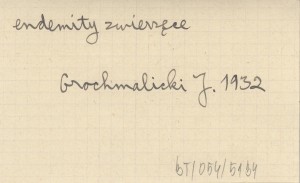 endemity zwierzęce
Grochmalicki J. 1932
bT/054/5164